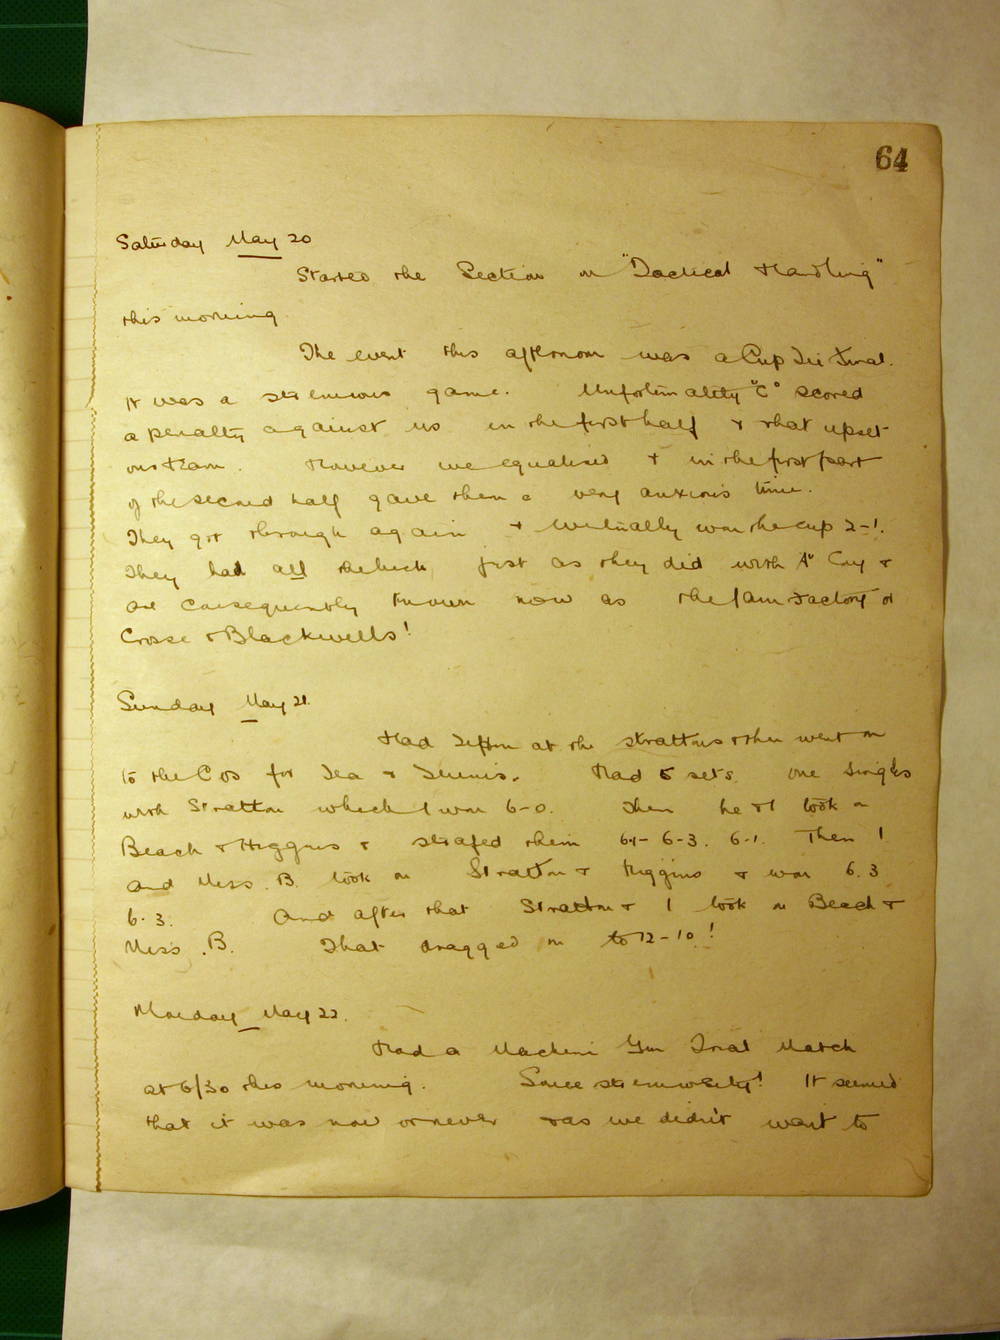 64
Saturday May 20
Started the Section on "Tactical Handling"
this morning
The event this afternoon was a Cup Tie Final.
It was a strenuous game. Unfortunately "C" scored
a penalty against us in the first half & that upset
our team. However we equalised & in the first part
of the second half gave them a very anxious time.
They got through again & eventually won the cup 2-1.
They had all the luck, just as they did with "A" Coy &
are consequently known now as the Jam Factory or
Crosse & Blackwells!
Sunday May 21.
Had Tiffin at the Strattons & then went on
to the Cos for Tea & Tennis. Had 5 sets. One singles
with Stratton which I won 6-0. Then he & I took on
Beach & Higgins & strafed them 6-1- 6-3. 6-1. Then I
and Miss. B. took on Stratton & Higgins & won 6.3
6.3. And after that Stratton & I took on Beach &
Miss. B. That dragged on to 12-10!
Monday May 22.
Had a Machine Gun Trial Match
at 6/30 this morning. Some strenuosity! It seemed
that it was now or never & as we didn't want to